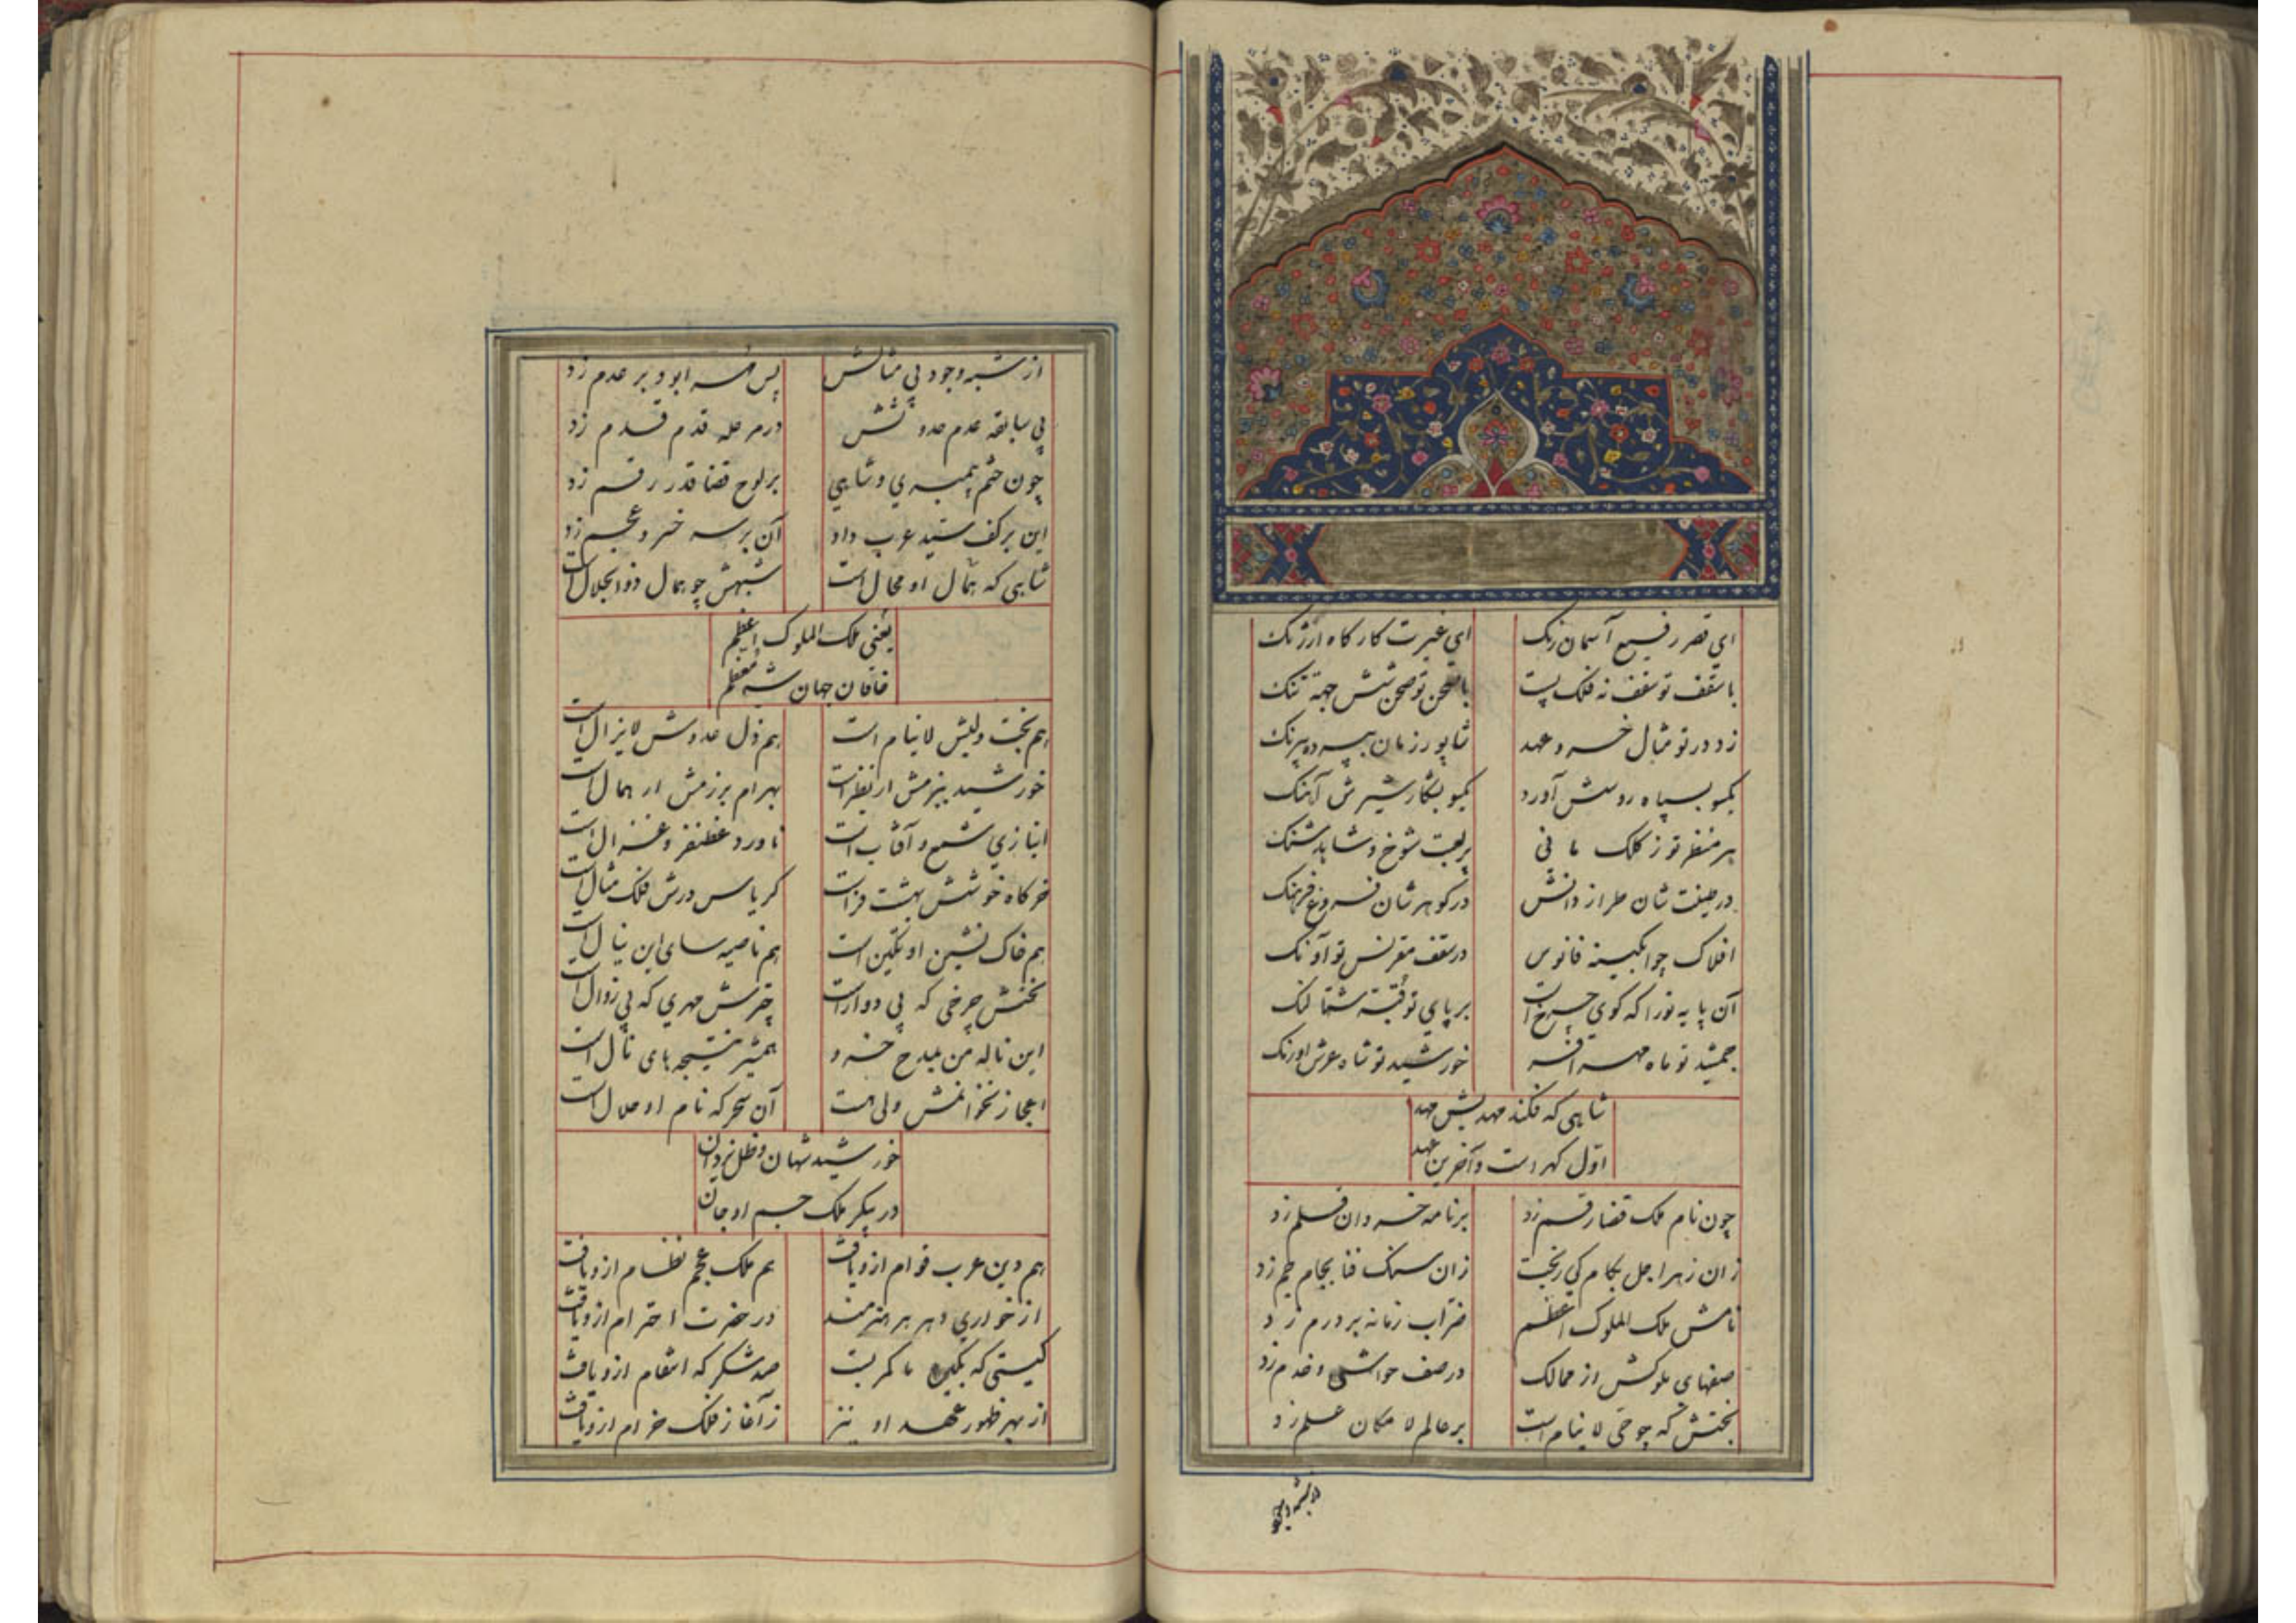 ای قصر رفیع آسمان رنک ای غیرت کارکاه ارژنک
با سقف تو سقف نه فلک پست با صحن تو صحن شش جهة تنک
زد در تو مثال خسرو عهد شاپور زمان بهپرده پیرنک
یکسو بسپاه روسش آورد یکسو بشکار شیرش آهنک
بر منظر تو ز کلک مانی پر لعبت شوخ و شاهد شنک
در طینت شان طراز دانش در کوهر شان فروغ فرهنک
افلاک چو ابکینه فانوس در سقف مقرنس تو آونک
آن پایه تورا که کوی چرخ است بر پای تو قبهٔ شتالنک
جمشید تو ماه مهر افسر خورشید تو شاه عرش اورنک
شاهی که فکند مهد پیش مهد
اول کهر است و آخرین عهد
چون نام ملک قضا رقم زد بر نامه خسروان قلم زد
زان زهر اجل بکام کی ریخت زان سنک فنا بجام جم زد
نامش ملک الملوک اعظم ضراب زمانه بر درم زد
صفهای ملوکش از ممالک در صف حواشی و خدم زد
بختش که چو حی لاینام است بر عالم لامکان علم زد
از شبه وجود بی مثالش
از شبه وجود بی مثالش پس قرعه ابو بر عدم زد
بی سابقه عدم حدوثش در مرحله قدم قدم زد
چون ختم پیمبری و شاهی بر لوح قضا قدر رقم زد
این بر کف سید عرب داد آن بر سر خسرو عجم زد
شاهی که همال او محال است شبهش چو همال ذو الجلال است
یعنی ملک الملوک اعظم
خاقان جهان شه معظم
هم بخت ولیش لاینام است هم ذل عدوش لایزال است
خورشید ببزمش ار نظیر است بهرام برزمش ار همال است
انبازی شمع و آفتاب است ناورد غضنفر و غزال است
خرکاه خوشش بهشت فر است کریاس درش فلک مثال است
هم خاک نشین او تکین است هم ناصیه سای این ینال است
بختش چرخی که بی دوار است چترش مهری که بی زوال است
این ناله من بمدح خسرو همشیر نتیجه های نال است
اعجاز نخوانمش ولی هست آن سحر که نام او حلال است
خورشید شهان و ظل یزدان
در پیکر ملک جسم او جان
هم دین عرب قوام ازو یافت هم ملک عجم نظام ازو یافت
از خواری دهر هر هنرمند در حضرت احترام ازو یافت
کیتی که بکین ما کمر بست صد شکر که انتقام ازو یافت
از بهر ظهور عهد او نیز ز آغاز فلک خرام ازو یافت